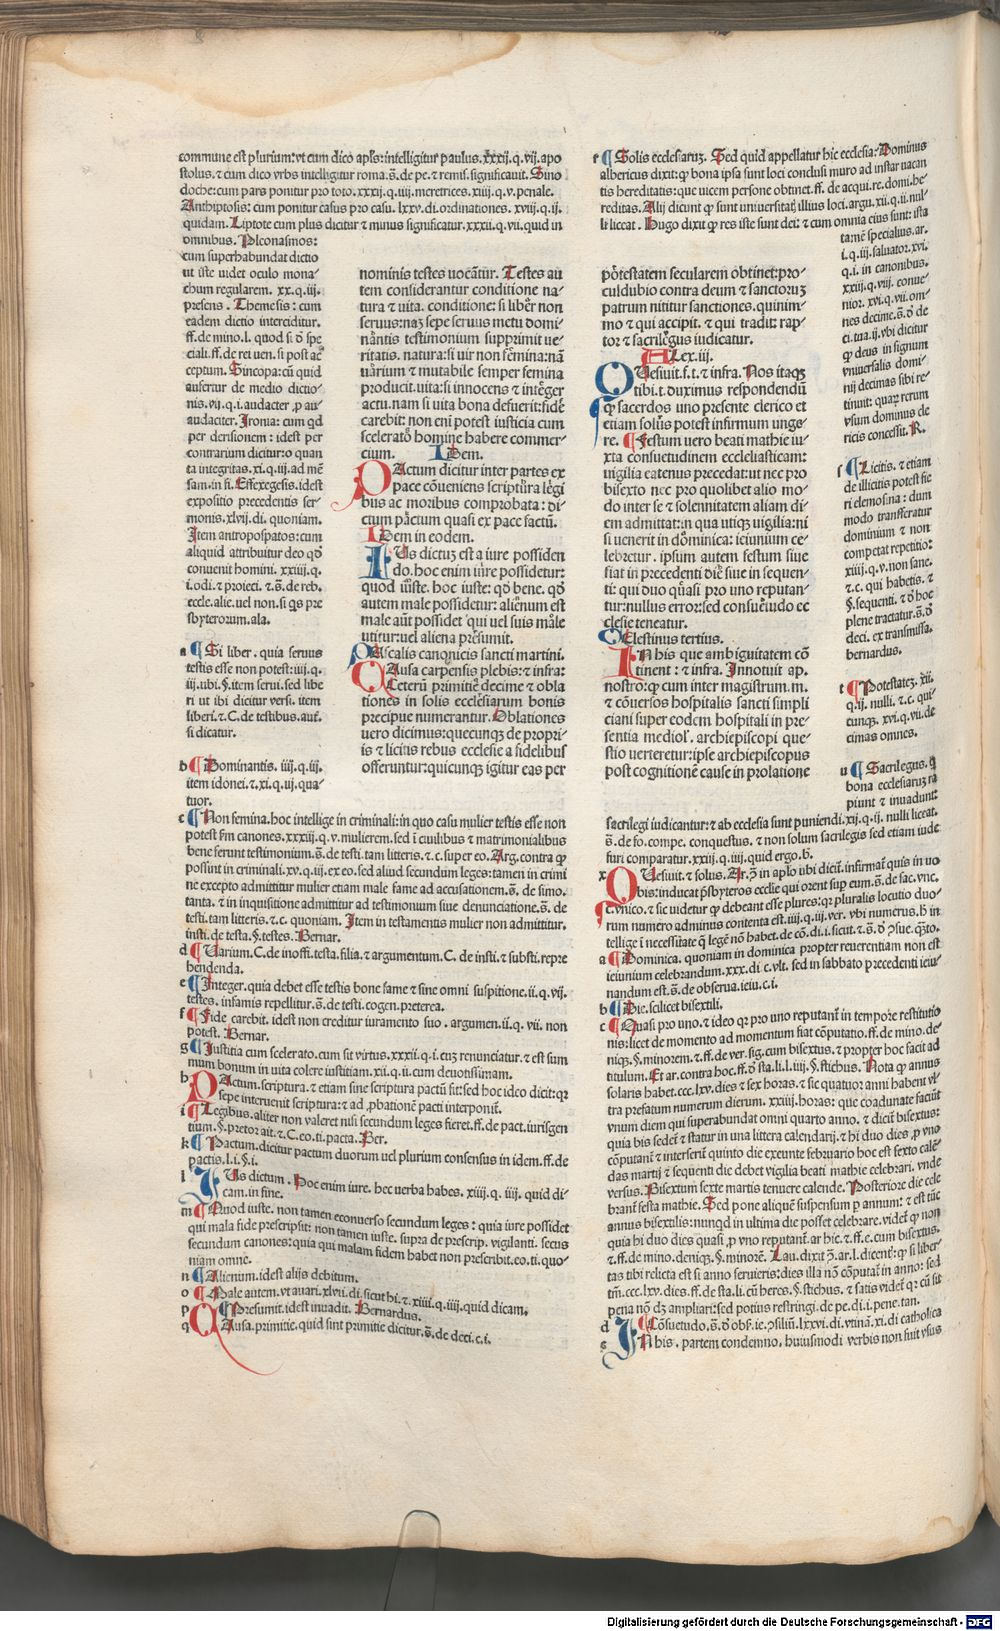 commune est plurium: vt cum dico apl's: intelligitur paulus. xxxij. q. vij. apo
stolus. ⁊ cum dico vrbs intelligitur roma. s̄. de pe. ⁊ remis. significauit. Sino
doche: cum pars ponitur pro toto. xxxij. q. iiij. meretrices. xiij. q. v. penale.
Anthiptosis: cum ponitur casus pro casu. lxxv. di. ordinationes. xviij. q. ij.
quidam. Liptote cum plus dicitur ⁊ minus significatur. xxxij. q. vij. quid in
omnibus. Pleonasmos:
cum superhabundat dictio
ut iste uidet oculo mona-
chum regularem. xx. q. iij.
presens. Themesis: cum
eadem dictio interciditur.
ff. de mino. l. quod si ð spe
ciali. ff. de rei uen. si post ac
ceptum. Sincopa: cū quid
aufertur de medio dictio-
nis. vij. q. i. audacter p̱ au-
audaciter. Ironia: cum qd
per derisionem: idest per
contrarium dicitur: o quan
ta integritas. xi. q. iij. ad mē
sam. in fi. Effexegesis. idest
expositio precedentis ser-
monis. xlvij. di. quoniam.
Item antropospatos: cum
aliquid attribuitur deo qd
conuenit homini. xxiij. q.
i. odi. ⁊ proieci. ⁊ s̄. de reb.
eccle. alie. uel non. si qs pre
sbyterorum. ala.
a Si liber. quia seruus
testis esse non potest: iiij. q.
iij. vbi. §. item serui. sed libe
ri ut ibi dicitur versi. item
liberi. ⁊ C. de testibus. aut.
si dicatur.
b Dominantis. iiij. q. iij.
item idonei. ⁊. xi. q. uj. qua-
tuor.
nominis testes uocātur. Testes au
tem considerantur conditione na-
tura ⁊ uita. conditione: si liber non
seruus: naz sepe seruus metu domi-
nantis testimonium supprimit ue-
ritatis. natura: si uir non femina: nā
uarium ⁊ mutabile semper femina
producit. uita: si innocens ⁊ integer
actu. nam si uita bona defuerit: fide
carebit: non eni potest iusticia cum
scelerato homine habere commer-
cium. Idem.
PActum dicitur inter partes ex
pace cōueniens scriptura legi
bus ac moribus comprobata: di-
ctum pactum quasi ex pace factū.
Idem in eodem.
IUs dictuz est a iure possiden
do. hoc enim iure possidetur:
quod iuste. hoc iuste: qd bene. qd
autem male possidetur: alienum est
male aūt possidet qui uel suis male
utitur: uel aliena presumit.
Pascalis canonicis sancti martini.
CAusa carpensis plebis: ⁊ infra:
Ceterū primitie decime ⁊ obla
tiones in solis ecclesiarum bonis
precipue numerantur. Oblationes
uero dicimus: quecunq; de propri-
is ⁊ licitis rebus ecclesie a fidelibus
offeruntur: quicunq; igitur eas per
c Non femina. hoc intellige in criminali: in quo casu mulier testis esse non
potest fm canones. xxxiij. q. v. mulierem. sed ī ciuilibus ⁊ matrimonialibus
bene ferunt testimonium. s̄. de testi. tam litteris. ⁊. c. super eo. Arg. contra ꝙ
possint in criminali. xv. q. iij. ex eo. sed aliud secundum leges: tamen in crimi
ne excepto admittitur mulier etiam male fame ad accusationem. s̄. de simo.
tanta. ⁊ in inquisitione admittitur ad testimonium siue denunciatione. s̄. de
testi. tam litteris. ⁊. c. quoniam. Item in testamentis mulier non admittitur.
insti. de testa. §. testes. Bernar.
d Uarium. C. de inoffi. testa. filia. ⁊ argumentum. C. de insti. ⁊ substi. repre
hendenda.
e Integer. quia debet esse testis bone fame ⁊ sine omni suspitione. ij. q. vij.
testes. infamis repellitur. s̄. de testi. cogen. preterea.
f Fide carebit. idest non creditur iuramento suo. argumen. ij. q. vij. non
potest. Bernar.
g Justitia cum scelerato. cum sit virtus. xxxij. q. i. cuz renunciatur. ⁊ est sum
mum bonum in vita colere iustitiam. xij. q. ij. cum deuotissimam.
h PActum. scriptura. ⁊ etiam sine scriptura pactū fit: sed hoc ideo dicit: qr
sepe interuenit scriptura: ⁊ ad p̱bationē pacti interponit.
i Legibus. aliter non valeret nisi secundum leges fieret. ff. de pact. iurisgen
tium. §. pretor ait. ⁊ C. eo. ti. pacta. Ber.
k Pactum. dicitur pactum duorum uel plurium consensus in idem. ff. de
pactis. l. i. §. i.
l IUs dictum. Hoc enim iure. hec uerba habes. xiiij. q. iiij. quid di-
cam. in fine.
m Quod iuste. non tamen econuerso secundum leges: quia iure possidet
qui mala fide prescripsit: non tamen iuste. supra de prescrip. vigilanti. secus
secundum canones: quia qui malam fidem habet non prescribit. eo. ti. quo-
niam omne.
n Alienum. idest alijs debitum.
o Male autem. vt auari. xlvij. di. sicut hi. ⁊. xiiij. q. iiij. quid dicam.
p Presumit. idest inuadit. Bernardus.
q CAusa. primitie. quid sunt primitie dicitur. s̄. de deci. c. i.
r Solis ecclesiaruz. Sed quid appellatur hic ecclesia: Dominus
albericus dixit: ꝙ bona ipsa sunt loci conclusi muro ad instar uacan
tis hereditatis: que uicem persone obtinet. ff. de acqui. re. domi. he-
reditas. Alij dicunt ꝙ sunt uniuersitatis illius loci. argu. xij. q. ij. nul-
li liceat. Hugo dixit ꝙ res iste sunt dei: ⁊ cum omnia eius sunt: ista
tamē specialius. ar.
i. q. iij. saluator. xvi.
q. i. in canonibus.
xxiij. q. viij. conue-
nior. xvi. q. vij. om-
nes decime. s̄. ð de
ci. tua. ij. vbi dicitur
ꝙ deus in signum
vniuersalis domi-
nij decimas sibi re-
tinuit: quaꝝ rerum
vsum dominus de
ricis concessit. R.
s Licitis. ⁊ etiam
de illicitis potest fie
ri elemosina: dum
modo transferatur
dominium ⁊ non
competat repetitio:
xiiij. q. v. non sane.
⁊ c. qui habetis. ⁊
§. sequenti. ⁊ ð hoc
plene tractatur. s̄. ð
deci. ex transmissa.
bernardus.
t Potestatez. xij.
q. ij. nulli. ⁊. c. qui-
cunq;. xvi. q. vij. de
cimas omnes.
u Sacrilegus. q
bona ecclesiaruz ra
piunt ⁊ inuadunt
potestatem secularem obtinet: pro-
culdubio contra deum ⁊ sanctoruz
patrum nititur sanctiones. quinim-
mo ⁊ qui accipit. ⁊ qui tradit: rap-
tor ⁊ sacrilegus iudicatur.
Alex. iij.
QUesiuit. f. t. ⁊ infra. Nos itaqꝫ
tibi. t. duximus respondendū
ꝙ sacerdos uno presente clerico et
etiam solus potest infirmum unge-
re. Festum uero beati mathie iu-
xta consuetudinem ecclesiasticam:
uigilia eatenus precedat: ut nec pro
bisexto nec pro quolibet alio mo-
do inter se ⁊ solennitatem aliam di-
em admittat: in qua utiqꝫ uigilia: ni
si uenerit in dominica: ieiunium ce-
lebretur. ipsum autem festum siue
fiat in precedenti die siue in sequen-
ti: qui duo quasi pro uno reputan-
tur: nullus error: sed consuetudo ec
clesie teneatur.
Celestinus tertius.
IN his que ambiguitatem cō
tinent: ⁊ infra. Innotuit ap.
nostro: ꝙ cum inter magistrum. m.
⁊ cōuersos hospitalis sancti simpli
ciani super eodem hospitali in pre-
sentia mediol'. archiepiscopi que-
stio uerteretur: ipse archiepiscopus
post cognitionē cause in prolatione
sacrilegi iudicantur: ⁊ ab ecclesia sunt puniendi. xij. q. ij. nulli liceat.
s̄. de fo. compe. conquestus. ⁊ non solum sacrilegus sed etiam iude
furi comparatur. xxiij. q. iiij. quid ergo. h.
x QUesiuit. ⁊ solus. Ar. ꝫ in aplo ubi dicit. infirmat quis in uo
bis: inducat p̄sbyteros ecclie qui orent sup eum. s̄. de sac. vnc.
c. vnico. ⁊ sic uidetur ꝙ debeant esse plures: qr pluralis locutio duo-
rum numero adminus contenta est. iiij. q. iij. ver. vbi numerus. h in
tellige ī necessitate q̄ legē nō habet. de cō. di. i. sicut. ⁊. s̄. ð ꝯsue. q̄to.
a Dominica. quoniam in dominica propter reuerentiam non est
ieiunium celebrandum. xxx. di. c. vlt. sed in sabbato precedenti ieiu-
nandum est. s̄. de obserua. ieiu. c. i.
b Die. scilicet bisextili.
c Quasi pro uno. ⁊ ideo qr pro uno reputant in tempore restitutio
nis: licet de momento ad momentum fiat cōputatio. ff. de mino. de-
niqꝫ. §. minorem. ⁊. ff. de ver. sig. cum bisextus. ⁊ propter hoc facit ad
titulum. Et ar. contra hoc. ff. ð sta. li. l. iiij. §. stichus. Nota ꝙ annus
solaris habet. ccc. lxv. dies ⁊ sex horas. ⁊ sic quatuor anni habent vl-
tra prefatum numerum dierum. xxiiij. horas: que coadunate faciūt
vnum diem qui superabundat omni quarto anno. ⁊ dicit bisextus:
quia bis sedet ⁊ statur in una littera calendarij. ⁊ hi duo dies p̱ vno
cōputant ⁊ interserit quinto die exeunte februario hoc est sexto cale-
das martij ⁊ sequenti die debet vigilia beati mathie celebrari. vnde
versus. Bisextum sexte martis tenuere calende. Posteriore die cele
brant festa mathie. Sed pone aliquē suspensum p annum: ⁊ est tūc
annus bisextilis: nunqd in ultima die posset celebrare. videt ꝙ non
quia hi duo dies quasi p̱ vno reputant. ar hic. ⁊. ff. c. cum bisextus.
⁊. ff. de mino. deniqꝫ. §. minorē. Lau. dixit ꝫ. ar. l. dicentē: ꝙ si liber-
tas tibi relicta est si anno seruieris: dies illa nō cōputat in anno: sed
tm̄. ccc. lxv. dies. ff. de sta. li. cū heres. §. stichus. ⁊ satis videt qr cū sit
pena nō dꝫ ampliari: sed potius restringi. de pe. di. i. pene. tan.
d Cōsuetudo. s̄. ð obs. ie. ꝯsiliū. lxxvi. di. vtinā. xi. di catholica
e IN his. partem condemno. huiusmodi verbis non fuit vsus
Digitalisierung gefördert durch die Deutsche Forschungsgemeinschaft - DFG